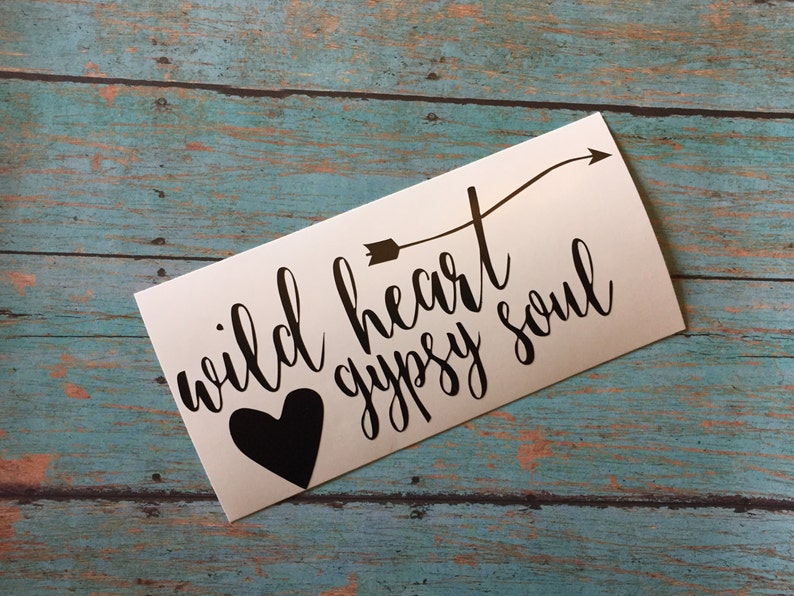 wild heart
gypsy soul